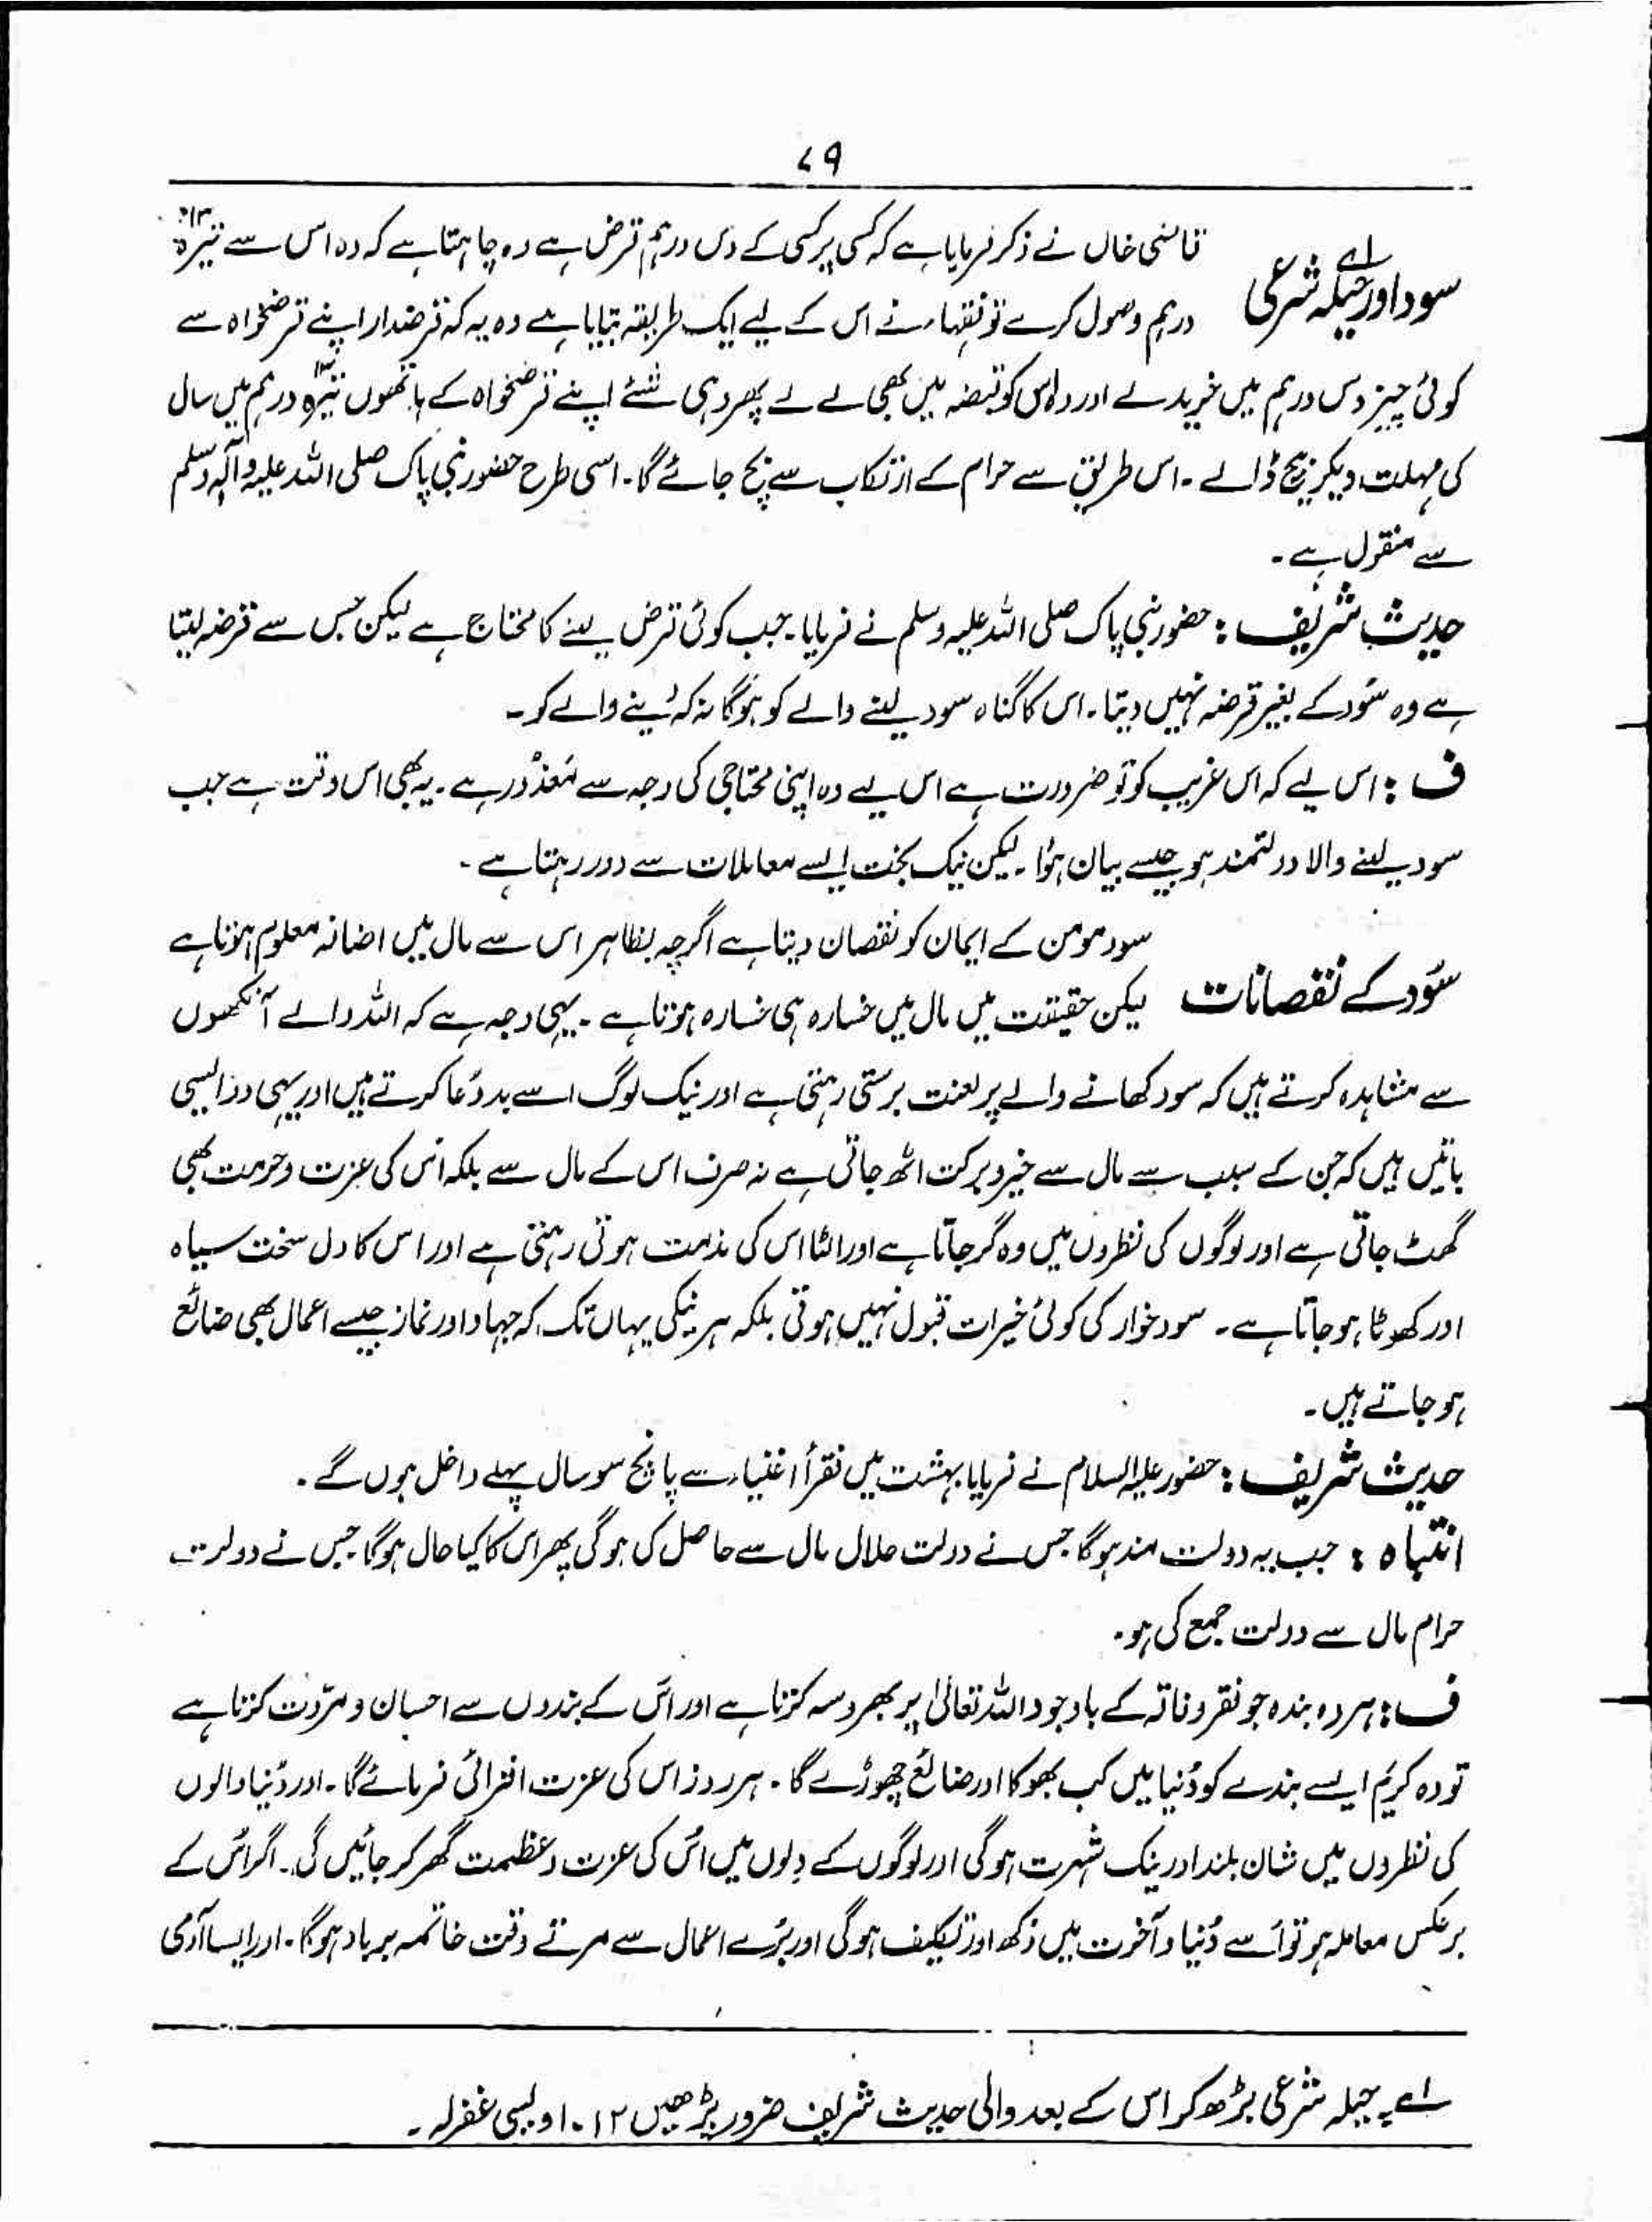 ۷۹
سود اور حیلہ شرعی لے
قاضی خاں نے ذکر فرمایا ہے کہ کسی پر کسی کے دس درہم قرض ہے وہ چاہتا ہے کہ وہ اس سے تیرہ ۱۳
درہم وصول کرے تو فقہاء نے اس کے لیے ایک طریقہ بتایا ہے وہ یہ کہ قرضدار اپنے قرضخواہ سے
کوئی چیز دس درہم میں خریدے اور وہ اس کو قبضہ میں بھی لے لے پھر وہی شئے اپنے قرضخواہ کے ہاتھوں تیرہ ۱۳ درہم میں سال
کی مہلت دیکر بیچ ڈالے ۔ اس طریق سے حرام کے ارتکاب سے بچ جائے گا۔ اسی طرح حضور نبی پاک صلی اللہ علیہ وآلہ وسلم
سے منقول ہے ۔
حدیث شریف : حضور نبی پاک صلی اللہ علیہ وسلم نے فرمایا ۔ جب کوئی قرض لینے کا محتاج ہے لیکن جس سے قرضہ لیتا
ہے وہ سُود کے بغیر قرضہ نہیں دیتا ۔ اس کا گناہ سود لینے والے کو ہوگا نہ کہ دینے والے کو ۔
ف : اس لیے کہ اس غریب کو تو ضرورت ہے اس لیے وہ اپنی محتاجی کی وجہ سے معذُور ہے ۔ یہ بھی اس وقت ہے جب
سود لینے والا دولتمند ہو جیسے بیان ہؤا ۔ لیکن نیک بخت ایسے معاملات سے دور رہتا ہے ۔
سُود کے نقصانات
سود مومن کے ایمان کو نقصان دیتا ہے اگرچہ بظاہر اس سے مال میں اضافہ معلوم ہوتا ہے
لیکن حقیقت میں مال میں خسارہ ہی خسارہ ہوتا ہے ۔ یہی وجہ ہے کہ اللہ والے آنکھوں
سے مشاہدہ کرتے ہیں کہ سود کھانے والے پر لعنت برستی رہتی ہے اور نیک لوگ اسے بددُعا کرتے ہیں اور یہی دو ایسی
باتیں ہیں کہ جن کے سبب سے مال سے خیر و برکت اٹھ جاتی ہے نہ صرف اس کے مال سے بلکہ اس کی عزت و حرمت بھی
گھٹ جاتی ہے اور لوگوں کی نظروں میں وہ گر جاتا ہے اور الٹا اس کی مذمت ہوتی رہتی ہے اور اس کا دل سخت سیاہ
اور کھوٹا ہو جاتا ہے ۔ سود خوار کی کوئی خیرات قبول نہیں ہوتی بلکہ ہر نیکی یہاں تک کہ جہاد اور نماز جیسے اعمال بھی ضائع
ہو جاتے ہیں ۔
حدیث شریف : حضور علیہ السلام نے فرمایا بہشت میں فقرأ اغنیاء سے پانچ سو سال پہلے داخل ہوں گے ۔
انتباہ : جب یہ دولت مند ہوگا جس نے دولت حلال مال سے حاصل کی ہوگی پھر اس کا کیا حال ہوگا جس نے دولت
حرام مال سے دولت جمع کی ہو ۔
ف : ہر وہ بندہ جو فقر و فاقہ کے باوجود اللہ تعالیٰ پر بھروسہ کرتا ہے اور اس کے بندوں سے احسان و مروّت کرتا ہے
تو وہ کریم ایسے بندے کو دُنیا میں کب بھوکا اور ضائع چھوڑے گا ۔ ہر روز اس کی عزت افزائی فرمائے گا ۔ اور دُنیا والوں
کی نظروں میں شان بلند اور نیک شہرت ہوگی اور لوگوں کے دلوں میں اُس کی عزت و عظمت گھر کر جائیں گی ۔ اگر اُس کے
برعکس معاملہ ہو تو اُسے دُنیا و آخرت میں دُکھ اور تکلیف ہوگی اور بُرے اعمال سے مرتے وقت خاتمہ برباد ہوگا ۔ اور ایسا آدمی
لے یہ حیلہ شرعی پڑھ کر اس کے بعد والی حدیث شریف ضرور پڑھیں ۱۲ ۔ اویسی غفرلہ ۔